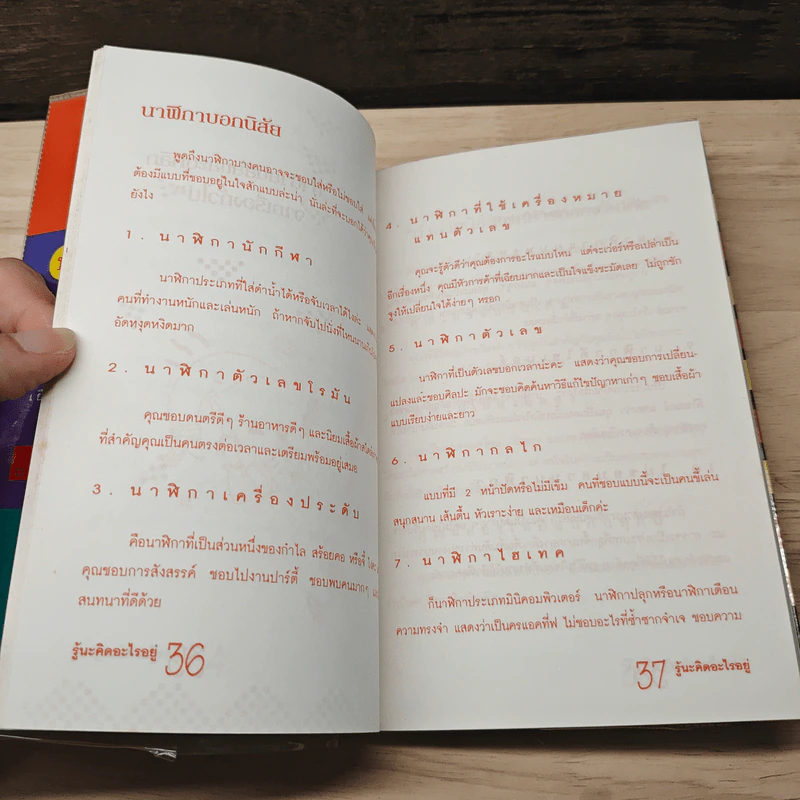 นาฬิกาบอกนิสัย
พูดถึงนาฬิกาบางคนอาจจะชอบใส่หรือไม่ชอบใส่
ต้องมีแบบที่ชอบอยู่ในใจสักแบบล่ะน่า นั่นล่ะที่จะบอกได้ว่า
ยังไง
1. นาฬิกานักกีฬา
นาฬิกาประเภทที่ใส่ดำน้ำได้หรือจับเวลาได้ไงล่ะ
คนที่ทำงานหนักและเล่นหนัก ถ้าหากจับไปนั่งที่ไหนนาน
อัดหงุดหงิดมาก
2. นาฬิกาตัวเลขโรมัน
คุณชอบดนตรีดีๆ ร้านอาหารดีๆ และนิยมเสื้อผ้า
ที่สำคัญคุณเป็นคนตรงต่อเวลาและเตรียมพร้อมอยู่เสมอ
3. นาฬิกาเครื่องประดับ
คือนาฬิกาที่เป็นส่วนหนึ่งของกำไล สร้อยคอ หรือจี้
คุณชอบการสังสรรค์ ชอบไปงานปาร์ตี้ ชอบพบคนมากๆ
สนทนาที่ดีด้วย
รู้นะคิดอะไรอยู่ 36
4. นาฬิกาที่ใช้เครื่องหมาย
แทนตัวเลข
คุณจะรู้ตัวดีว่าคุณต้องการอะไรแบบไหน แต่จะเว่อร์หรือเปล่าเป็น
อีกเรื่องหนึ่ง คุณมีหัวการค้าที่เฉียบมากและเป็นใจแข็งชะมัดเลย ไม่ถูกชัก
จูงให้เปลี่ยนใจได้ง่ายๆ หรอก
5. นาฬิกาตัวเลข
นาฬิกาที่เป็นตัวเลขบอกเวลาน่ะคะ แสดงว่าคุณชอบการเปลี่ยน-
แปลงและชอบศิลปะ มักจะชอบคิดค้นหาวิธีแก้ไขปัญหาเก่าๆ ชอบเสื้อผ้า
แบบเรียบง่ายและยาว
6. นาฬิกากลไก
แบบที่มี 2 หน้าปัดหรือไม่มีเข็ม คนที่ชอบแบบนี้จะเป็นคนขี้เล่น
สนุกสนาน เส้นตื้น หัวเราะง่าย และเหมือนเด็กค่ะ
7. นาฬิกาไฮเทค
ก็นาฬิกาประเภทมินิคอมพิวเตอร์ นาฬิกาปลุกหรือนาฬิกาเตือน
ความทรงจำ แสดงว่าเป็นครแอคทีฟ ไม่ชอบอะไรที่ซ้ำซากจำเจ ชอบความ
37 รู้นะคิดอะไรอยู่